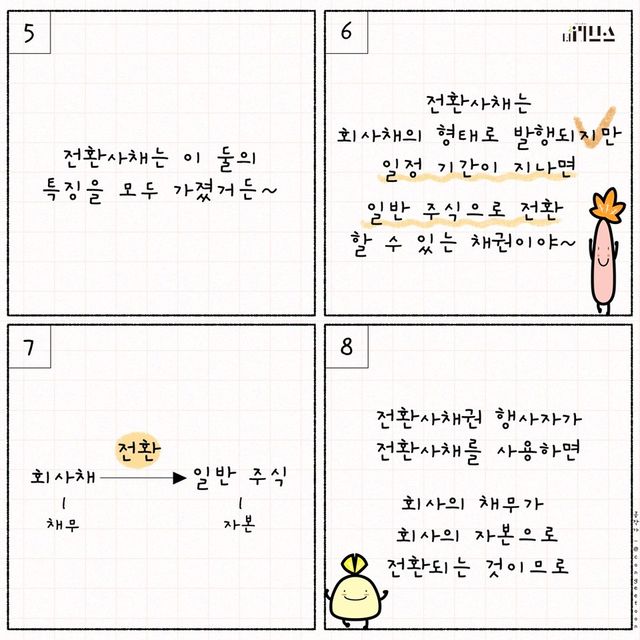 5
전환사채는 이 둘의
특징을 모두 가졌거든~
6
전환사채는
회사채의 형태로 발행되지만
일정 기간이 지나면
일반 주식으로 전환
할 수 있는 채권이야~
7
전환
회사채 일반 주식
채무 자본
8
전환사채권 행사자가
전환사채를 사용하면
회사의 채무가
회사의 자본으로
전환되는 것이므로